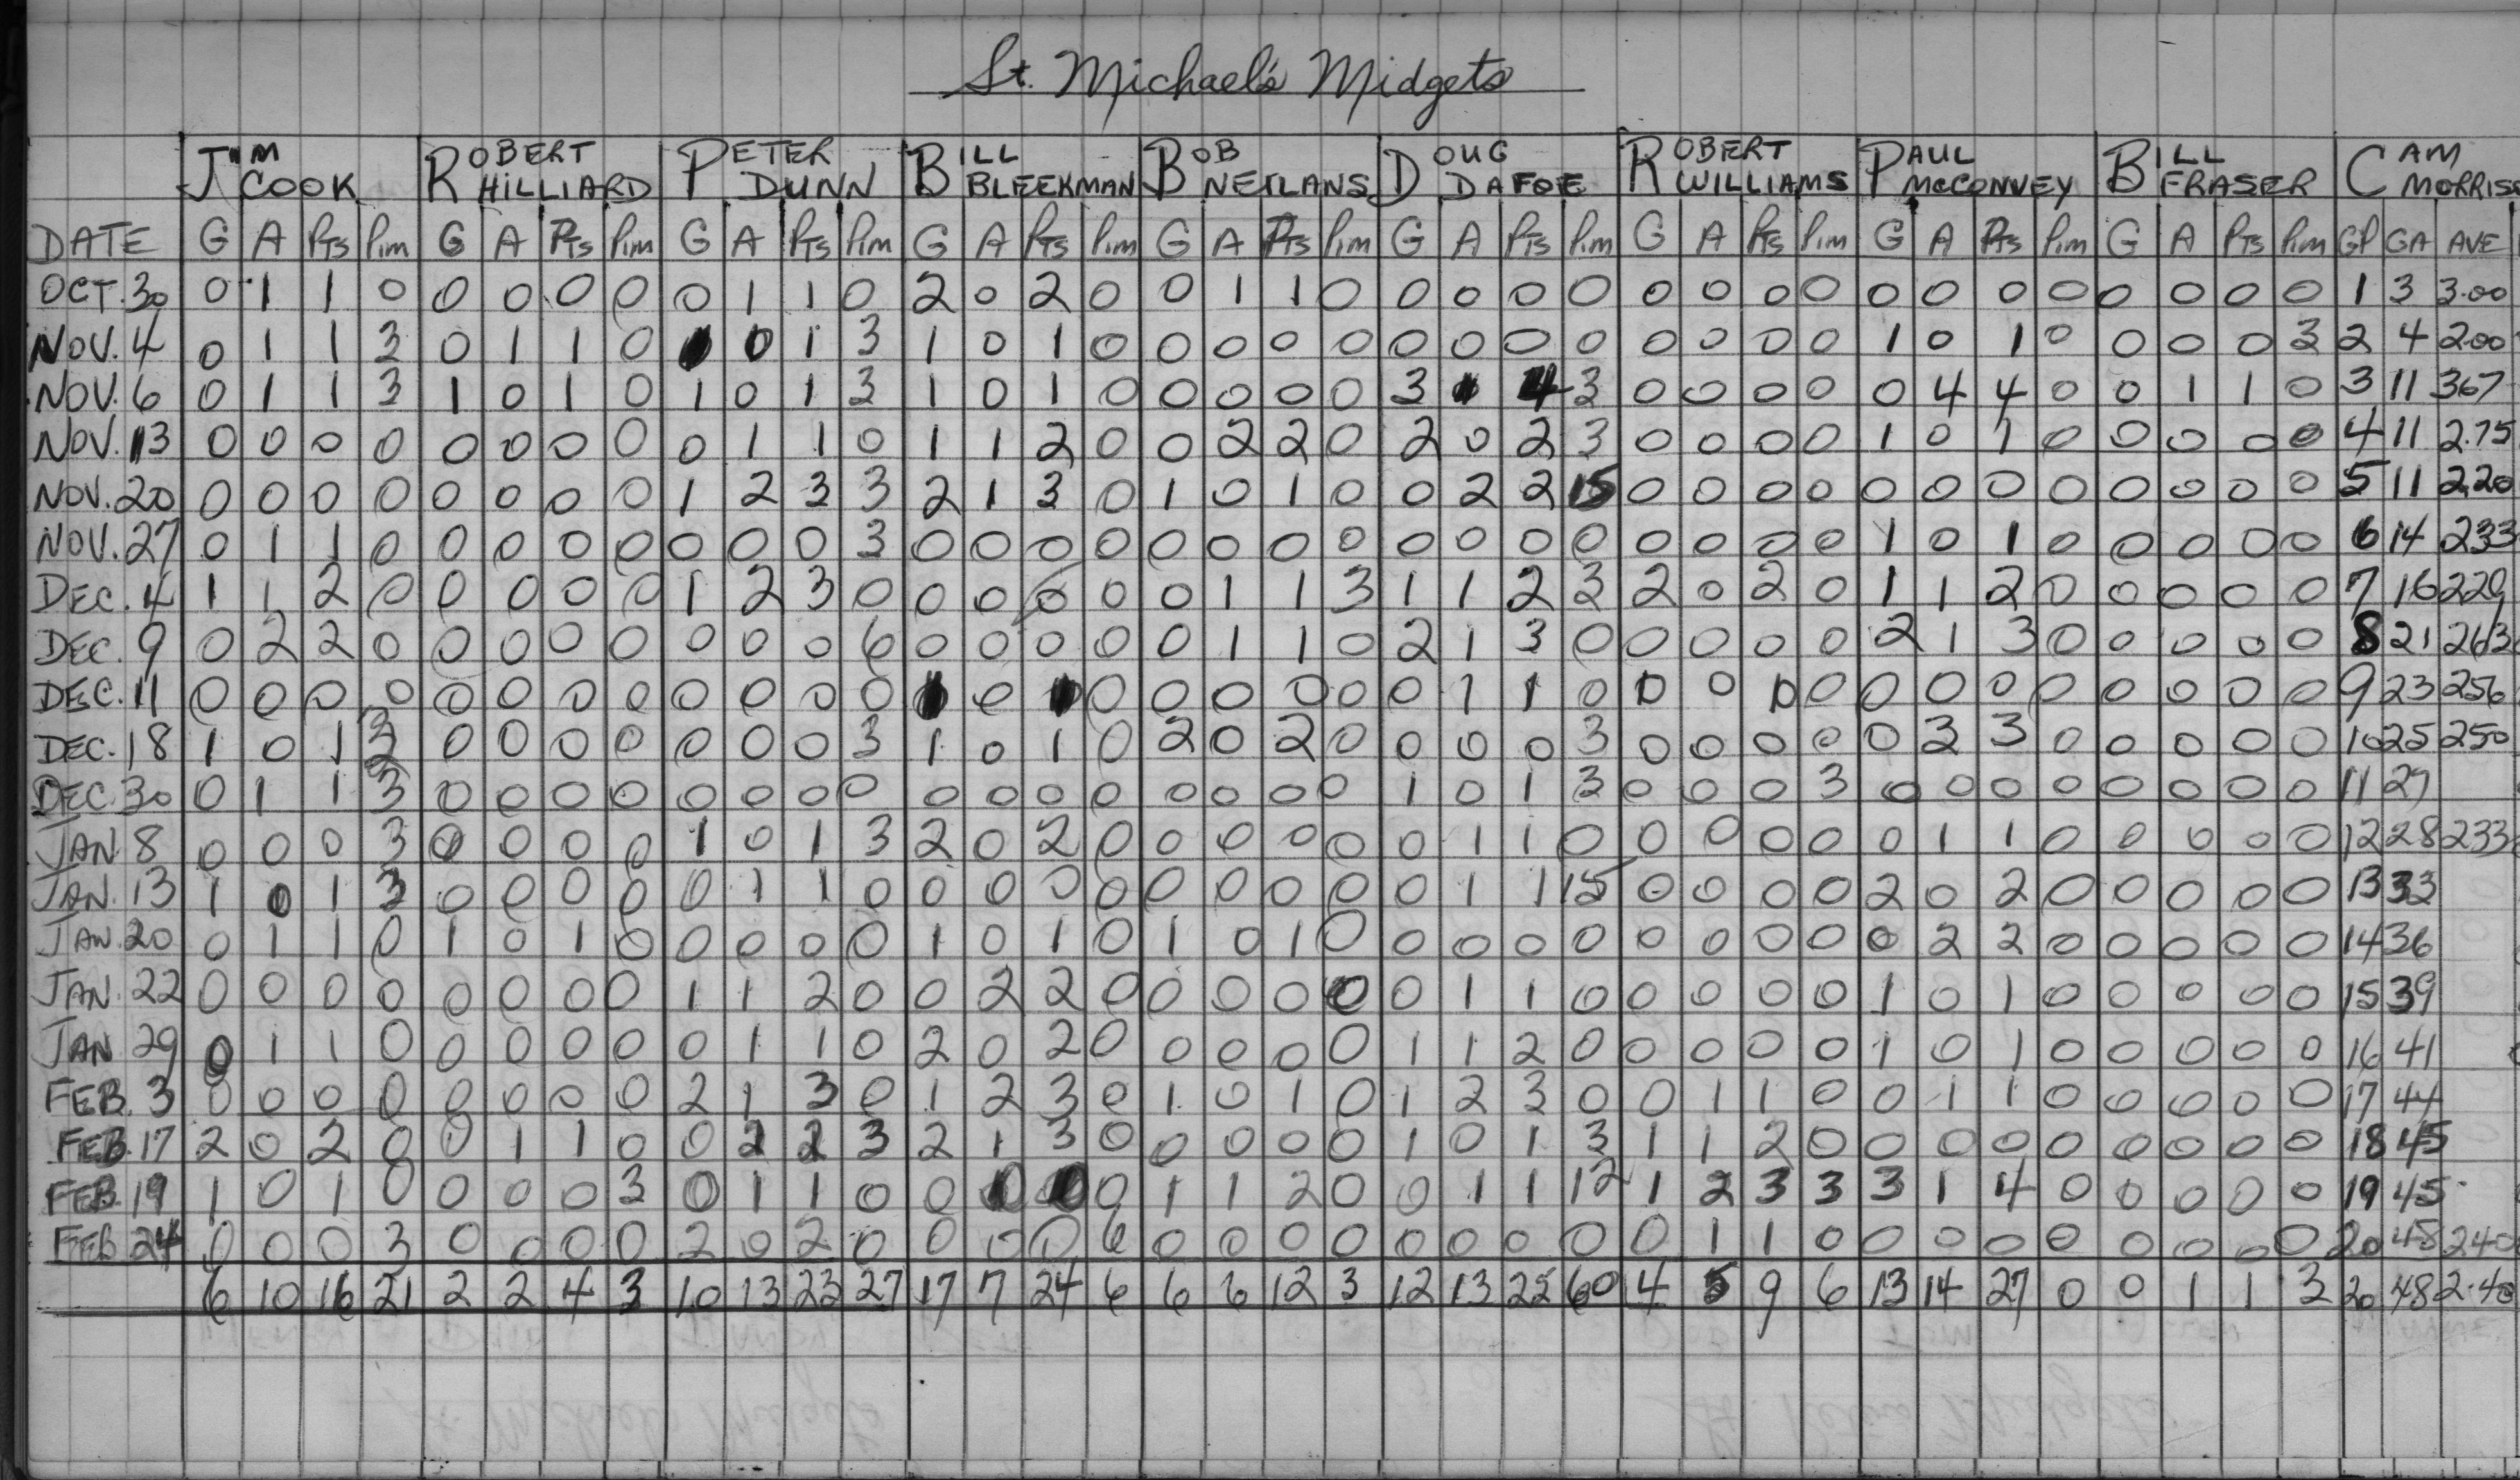 St. Michael's Midgets
JIM COOK ROBERT HILLIARD PETER DUNN BILL BLEEKMAN BOB NETLANS DOUG DAFOE ROBERT WILLIAMS PAUL McCONVEY BILL FRASER CAM MORRIS
DATE G A Pts Pim G A Pts Pim G A Pts Pim G A Pts Pim G A Pts Pim G A Pts Pim G A Pts Pim G A Pts Pim G A Pts Pim GP GA AVE
OCT. 30 0 1 1 0 0 0 0 0 0 1 1 0 2 0 2 0 0 1 1 0 0 0 0 0 0 0 0 0 0 0 0 0 0 0 0 0 1 3 3.00
NOV. 4 0 1 1 3 0 1 1 0 0 1 3 1 0 1 0 0 0 0 0 0 0 0 0 0 0 0 0 1 0 1 0 0 0 0 3 2 4 2.00
NOV. 6 0 1 1 3 1 0 1 0 1 0 1 3 1 0 1 0 0 0 0 0 3 1 4 3 0 0 0 0 0 4 4 0 0 1 1 0 3 11 367
NOV. 13 0 0 0 0 0 0 0 0 0 1 1 0 1 1 2 0 0 2 2 0 2 0 2 3 0 0 0 0 1 0 1 0 0 0 0 0 4 11 2.75
NOV. 20 0 0 0 0 0 0 0 0 1 2 3 3 2 1 3 0 1 0 1 0 0 2 2 15 0 0 0 0 0 0 0 0 0 0 0 0 5 11 2.20
NOV. 27 0 1 1 0 0 0 0 0 0 0 0 3 0 0 0 0 0 0 0 0 0 0 0 0 0 0 0 0 1 0 1 0 0 0 0 0 6 14 233
DEC. 4 1 1 2 0 0 0 0 0 1 2 3 0 0 0 0 0 0 1 1 3 1 1 2 3 2 0 2 0 1 1 2 0 0 0 0 0 7 16 229
DEC. 9 0 2 2 0 0 0 0 0 0 0 0 6 0 0 0 0 0 1 1 0 2 1 3 0 0 0 0 0 2 1 3 0 0 0 0 0 8 21 263
DEC. 11 0 0 0 0 0 0 0 0 0 0 0 0 1 0 1 0 0 0 0 0 0 1 1 0 0 0 0 0 0 0 0 0 0 0 0 0 9 23 256
DEC. 18 1 0 1 3 0 0 0 0 0 0 0 3 1 0 1 0 2 0 2 0 0 0 0 3 0 0 0 0 0 3 3 0 0 0 0 0 10 25 250
DEC. 30 0 1 1 3 0 0 0 0 0 0 0 0 0 0 0 0 0 0 0 0 1 0 1 3 0 0 0 3 0 0 0 0 0 0 0 0 11 27
JAN. 8 0 0 0 3 0 0 0 0 1 0 1 3 2 0 2 0 0 0 0 0 0 1 1 0 0 0 0 0 0 1 1 0 0 0 0 0 12 28 233
JAN. 13 1 0 1 3 0 0 0 0 0 1 1 0 0 0 0 0 0 0 0 0 0 1 1 15 0 0 0 0 2 0 2 0 0 0 0 0 13 33
JAN. 20 0 1 1 0 1 0 1 0 0 0 0 0 1 0 1 0 1 0 1 0 0 0 0 0 0 0 0 0 0 2 2 0 0 0 0 0 14 36
JAN. 22 0 0 0 0 0 0 0 0 1 1 2 0 0 2 2 0 0 0 0 0 0 1 1 0 0 0 0 0 1 0 1 0 0 0 0 0 15 39
JAN. 29 0 1 1 0 0 0 0 0 0 1 1 0 2 0 2 0 0 0 0 0 1 1 2 0 0 0 0 0 1 0 1 0 0 0 0 0 16 41
FEB. 3 0 0 0 0 0 0 0 0 2 1 3 0 1 2 3 0 1 0 1 0 1 2 3 0 0 1 1 0 0 1 1 0 0 0 0 0 17 44
FEB. 17 2 0 2 0 0 1 1 0 0 2 2 3 2 1 3 0 0 0 0 0 1 0 1 3 1 1 2 0 0 0 0 0 0 0 0 0 18 45
FEB. 19 1 0 1 0 0 0 0 3 0 1 1 0 0 0 1 1 2 0 0 1 1 12 1 2 3 3 3 1 4 0 0 0 0 0 19 45
FEB. 24 0 0 0 3 0 0 0 0 2 0 2 0 0 0 0 6 0 0 0 0 0 0 0 0 0 1 1 0 0 0 0 0 0 0 0 0 20 48 240
6 10 16 21 2 2 4 3 10 13 23 27 17 7 24 6 6 6 12 3 12 13 25 60 4 5 9 6 13 14 27 0 0 1 1 3 20 48 2.40